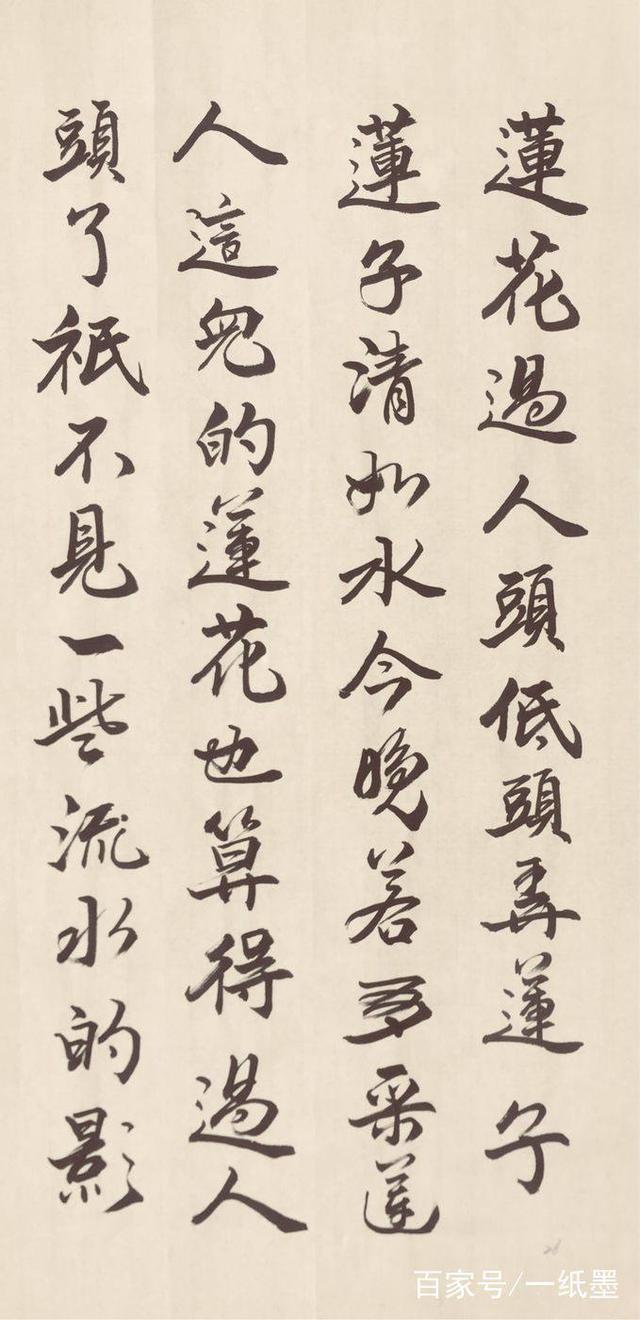 蓮花過人頭低頭弄蓮子
蓮子清如水今晚若有采蓮
人這兒的蓮花也算得過人
頭了祇不見一些流水的影
百家号/一纸墨